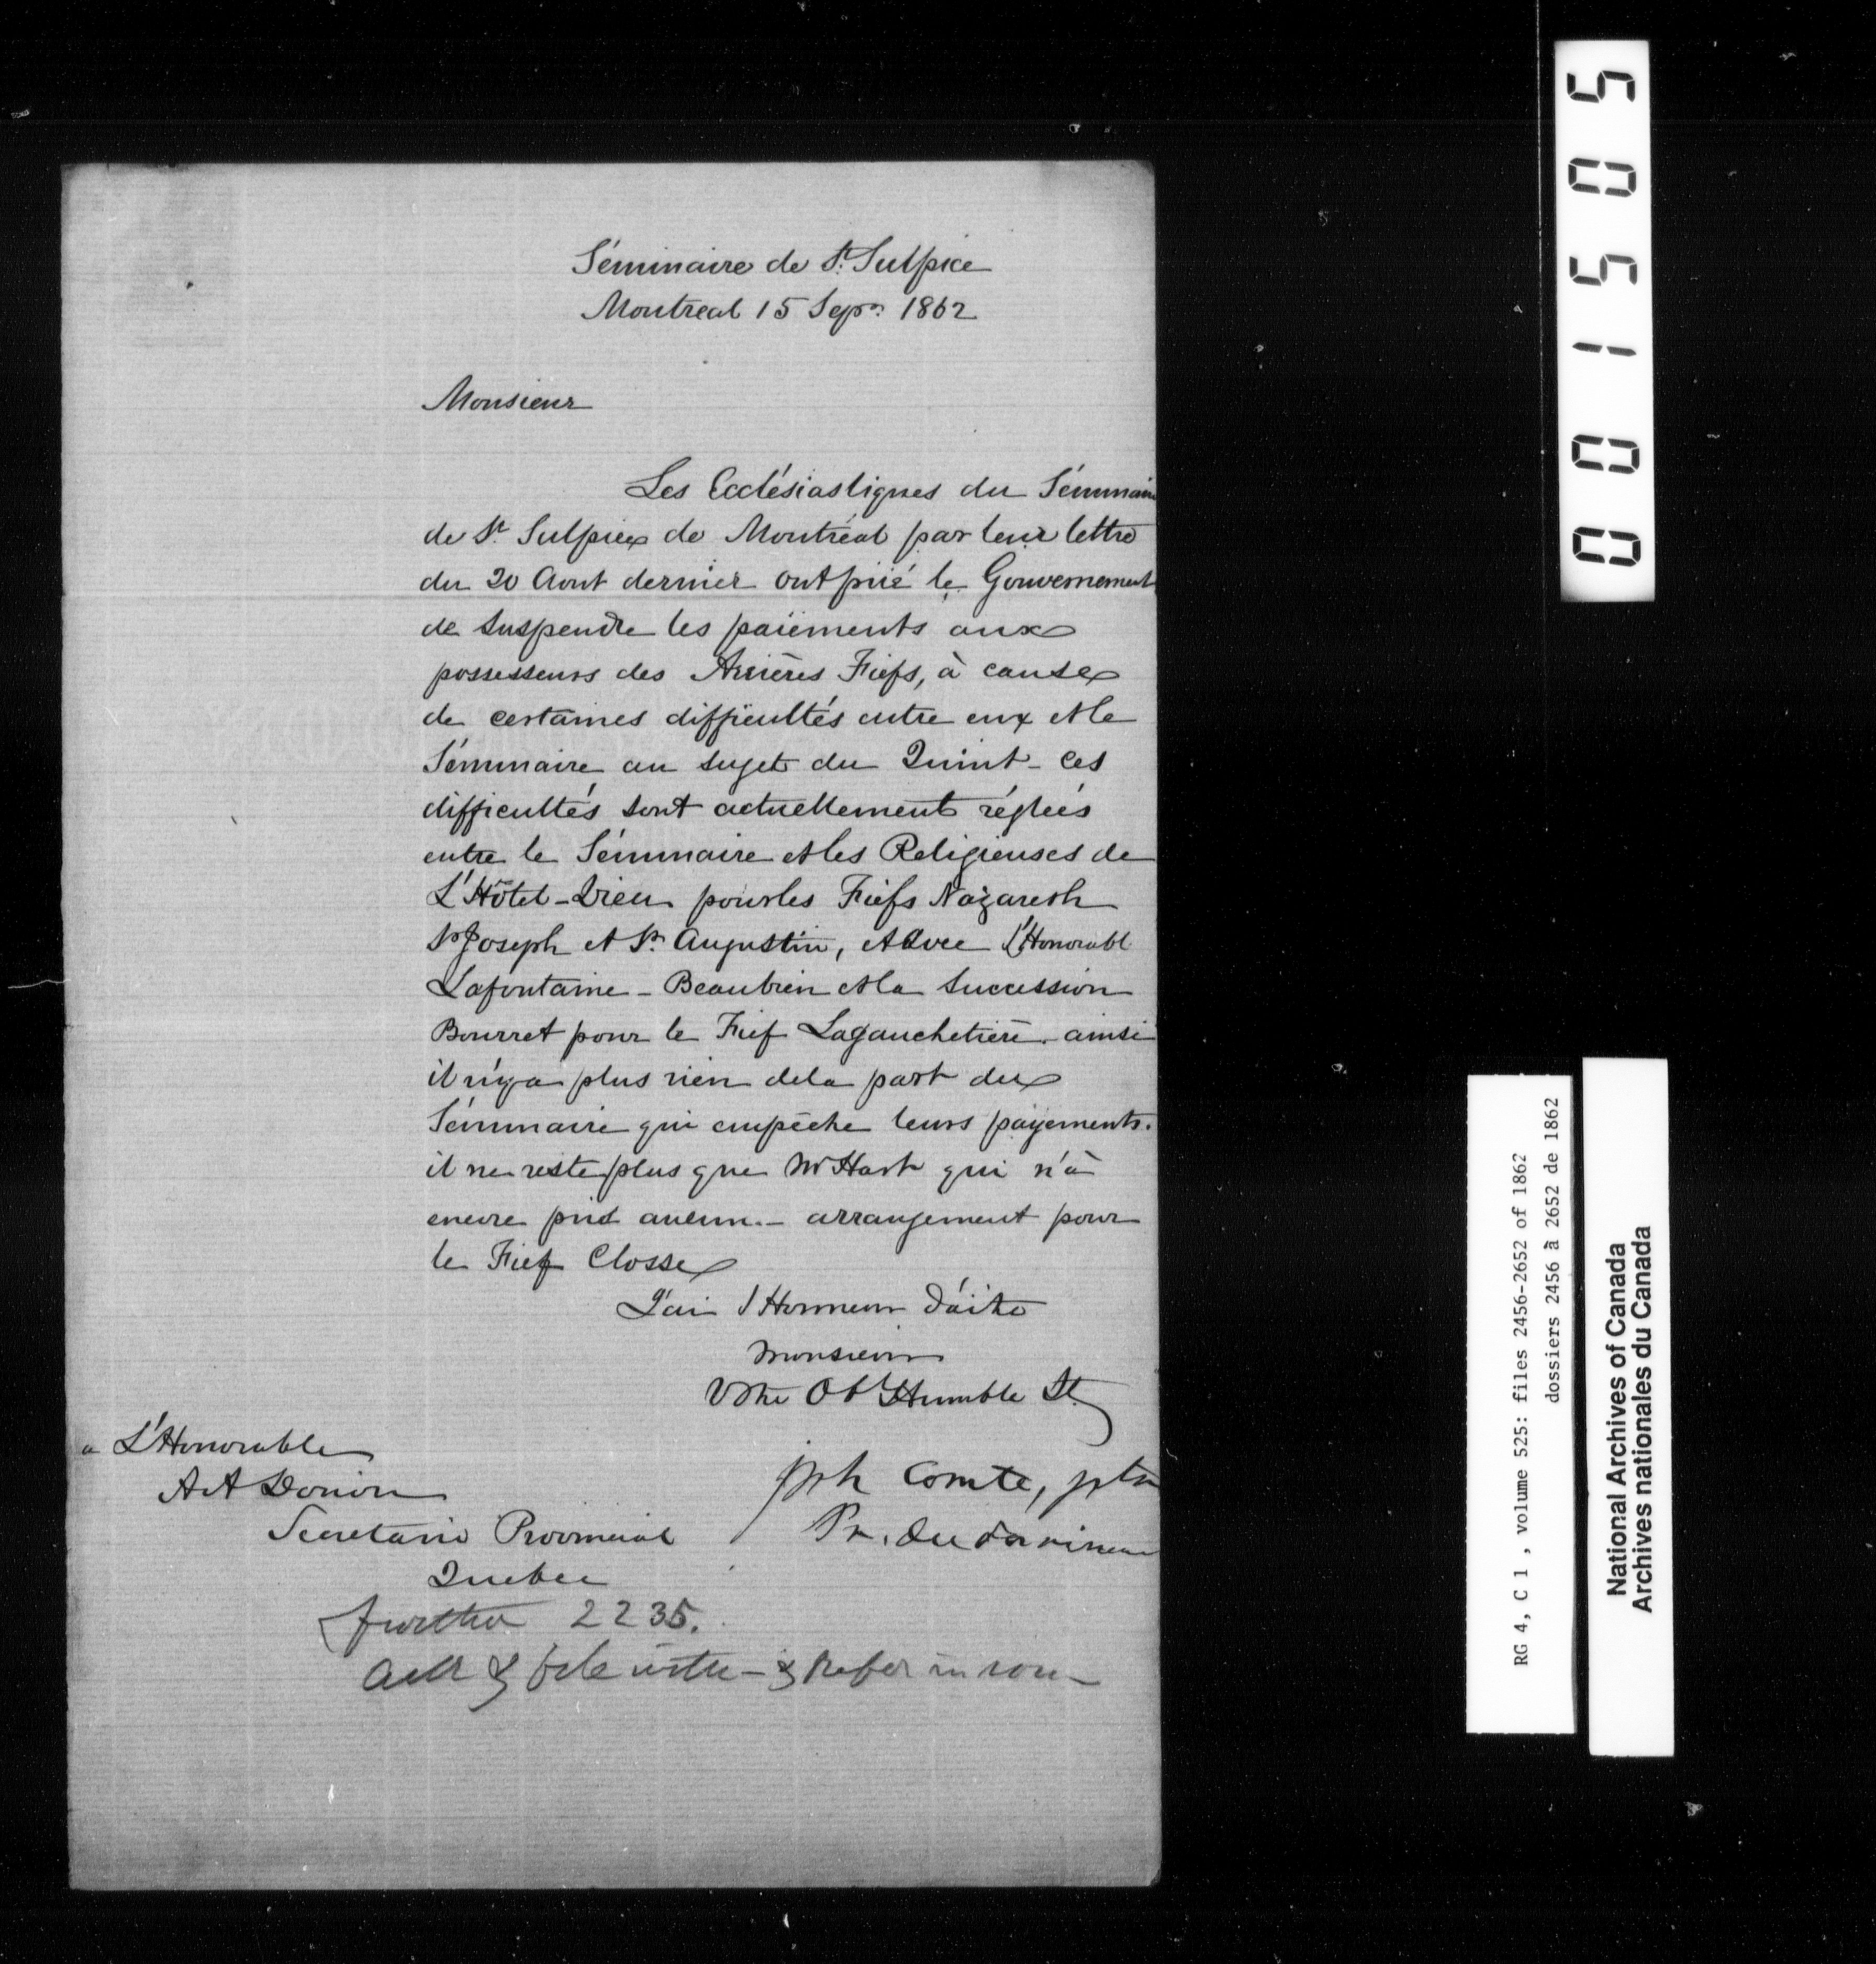 Séminaire de St. Sulpice
Montreal 15 Sepr. 1862
Monsieur
Les Ecclésiastiques du Séminaire
de St. Sulpice de Montréal par leur lettre
du 20 Aout dernier ont prié le Gouvernement
de suspendre les paiements aux
possesseurs des Arrières Fiefs, à cause
de certaines difficultés entre eux et le
Séminaire au sujet du Quint - Ces
difficultés sont actuellement réglées
entre le Séminaire et les Religieuses de
L'Hôtel-Dieu pour les Fiefs Nazareth
St Joseph et St. Augustin, et avec l'Honorabl
Lafontaine - Beaubien et la succession
Bourret pour le Fief Lagauchetière. ainsi
il n'y a plus rien de la part du
Séminaire qui empêche leurs payements.
il ne reste plus que Mr Hart qui n'à
encore prit aucun - arrangement pour
le Fief Closse
J'ai l'Honneur d'être
Monsieur
Votre Obt Humble St
a L'Honorable
A A Dorion
Secretaire Provincial
Quebec
jph Comte, ptre
Pr. du Séminaire
further 2235.
Ack & file with - & Refer in
001505
RG 4, C 1 , volume 525: files 2456-2652 of 1862
dossiers 2456 à 2652 de 1862
National Archives of Canada
Archives nationales du Canada